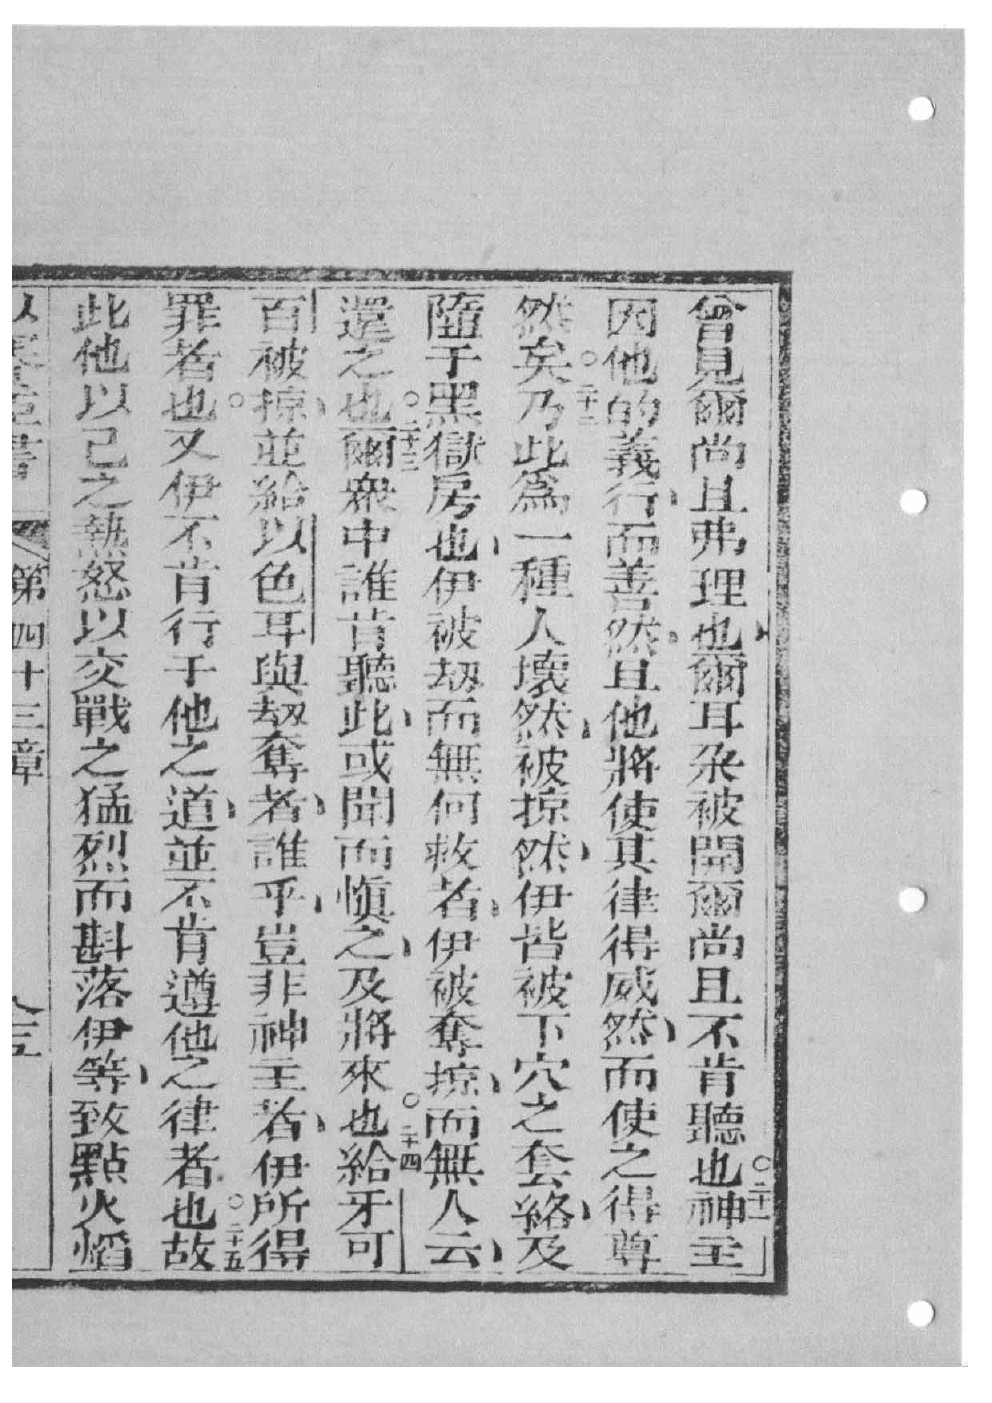 曾見爾尚且弗理也爾耳朶被開爾尚且不肯聽也○二十一神主
因他的義行而善然且他將使其律得威然而使之得尊
然矣○二十二乃此爲一種人壞然被掠然伊皆被下穴之套絡及
隨于黑獄房也伊被刼而無何救者伊被奪掠而無人云
還之也○二十三爾衆中誰肯聽此或聞而愼之及將來也○二十四給牙可
百被掠並給以色耳與刼奪者誰乎豈非神主者伊所得
罪者也○又伊不肯行于他之道並不肯遵他之律者也○二十五故
此他以己之熱怒以交戰之猛烈而斟落伊等致點火熖
以 書 第四十三章 八 五